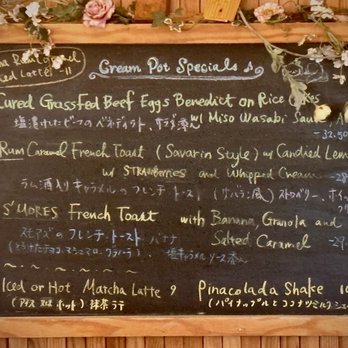 Latte) -11
Cream Pot Specials ♪
Cured Grassfed Beef Eggs Benedict on Rice Cakes
w/ Miso Wasabi
-32.50
Rum Caramel French Toast (Savarin Style) w/ Candied
w/ Strawberries and Whipped Cream
ラム酒入りキャラメルのフレンチトースト (サバラン風) ストロベリー、
S'MORES French Toast with Banana, Granola and
スモアズのフレンチ・トースト バナナ
Salted Caramel
Iced or Hot Matcha Latte 9
(アイス 又は ホット) 抹茶ラテ
Pinacolada Shake
(パイナップルとココナツミルク